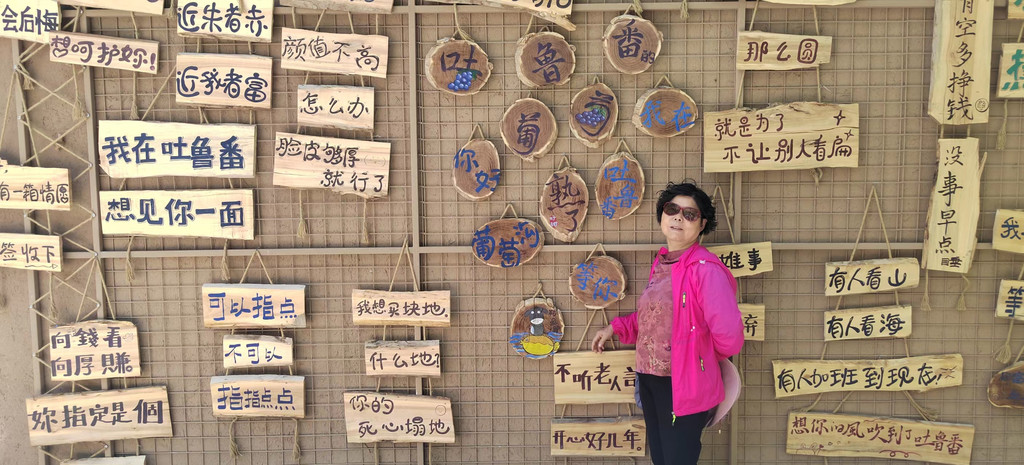 会后悔
想呵护妳!
近朱者赤
近我者富
颜值不高
怎么办
脸皮够厚
就行了
我在吐鲁番
想见你一面
有一箱情愿
签收下
向錢看
向厚賺
妳指定是個
可以指点
不可以
指指点点
我想买块地
什么地
你的
死心塌地
吐
鲁
番的
葡
我在
你好
熟了
吐鲁番
葡萄沟
等你
那么圆
就是为了
不让别人看扁
有空多挣钱
没事早点睡
有人看山
有人看海
有人加班到现在
想你的风吹到了吐鲁番
不听老人言
开心好几年